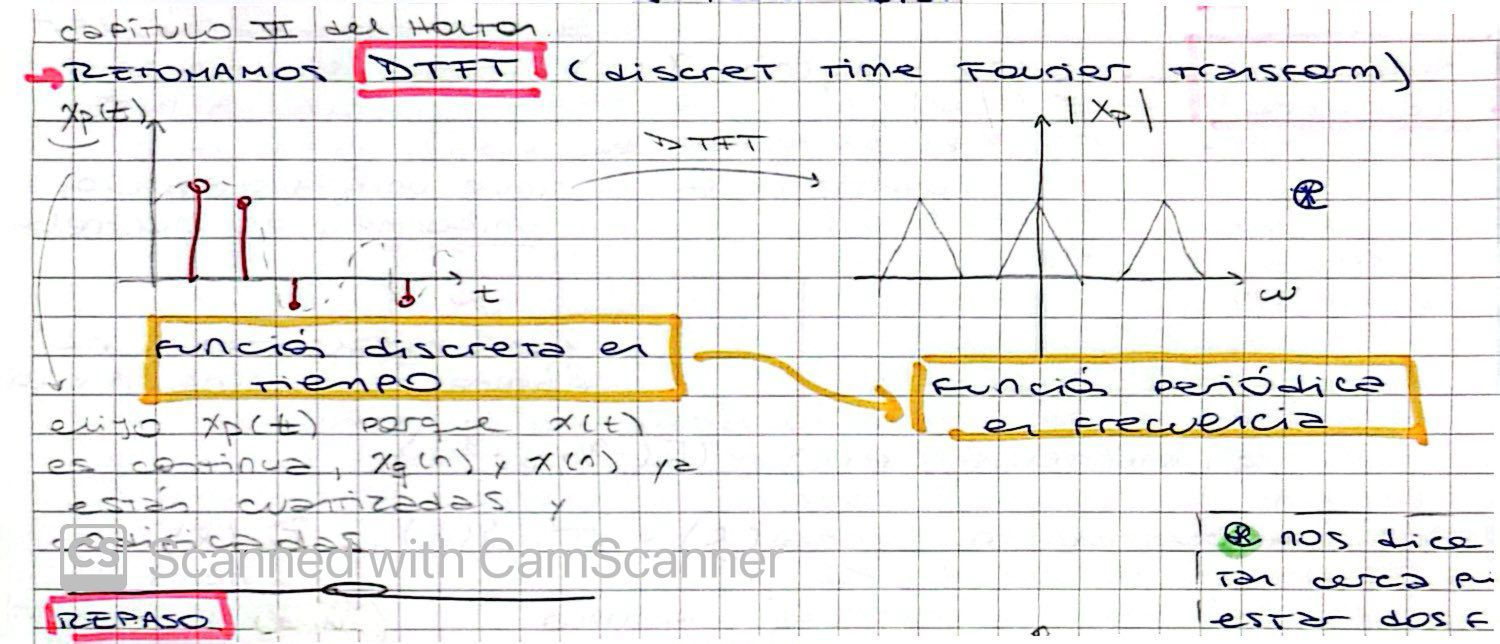 capítulo VI del Holton.
→ RETOMAMOS DTFT (discret Time Fourier transform)
xp(t)
DTFT
|Xp|
t
ω
función discreta en
tiempo
función periódica
en frecuencia
elijo xp(t) porque x(t)
es continua, xq(n) y x(n) ya
están cuantizadas y
codificadas
CS Scanned with CamScanner
nos dice
tan cerca pu
estar dos f
REPASO